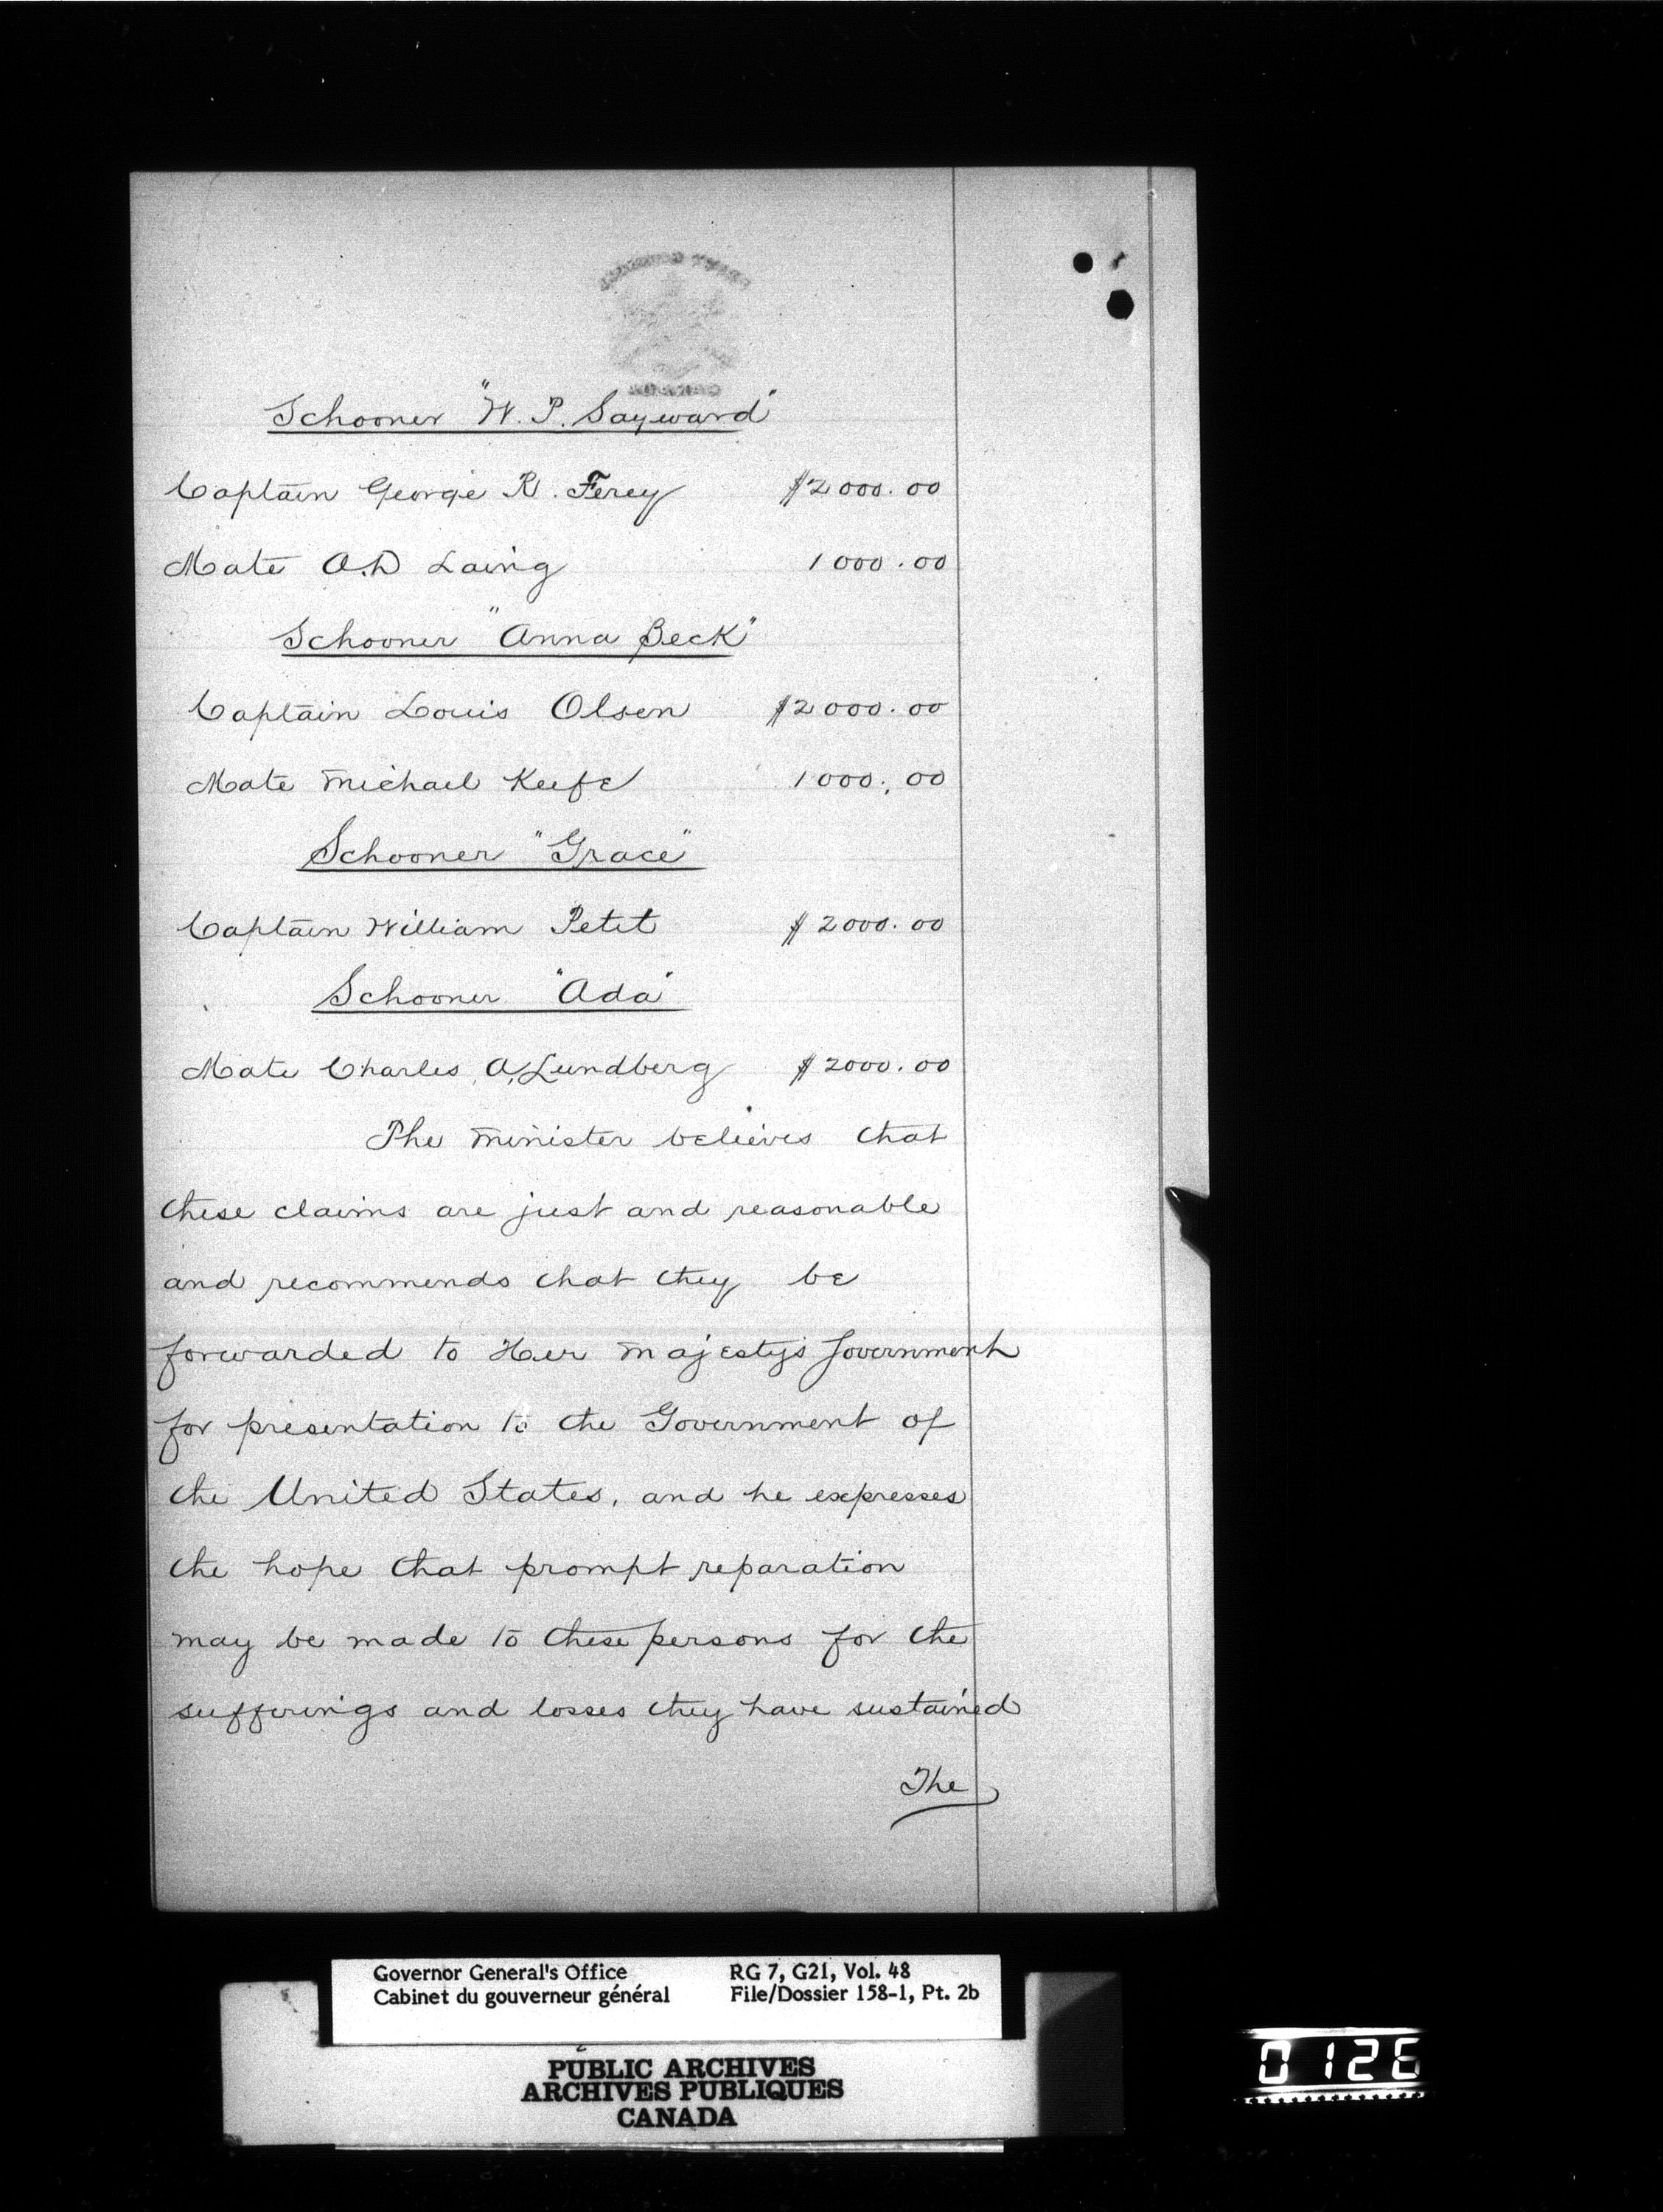 Schooner "W. P. Sayward"
Captain George R. Ferey $2000.00
Mate A.D Laing 1000.00
Schooner "Anna Beck"
Captain Louis Olsen $2000.00
Mate Michael Keefe 1000.00
Schooner "Grace"
Captain William Petit $2000.00
Schooner "Ada"
Mate Charles A. Lundberg $2000.00
The Minister believes that
these claims are just and reasonable
and recommends that they be
forwarded to Her Majestys Government
for presentation to the Government of
the United States, and he expresses
the hope that prompt reparation
may be made to these persons for the
sufferings and losses they have sustained
The
Governor General's Office RG 7, G21, Vol. 48
Cabinet du gouverneur général File/Dossier 158-1, Pt. 2b
PUBLIC ARCHIVES
ARCHIVES PUBLIQUES
CANADA
0126